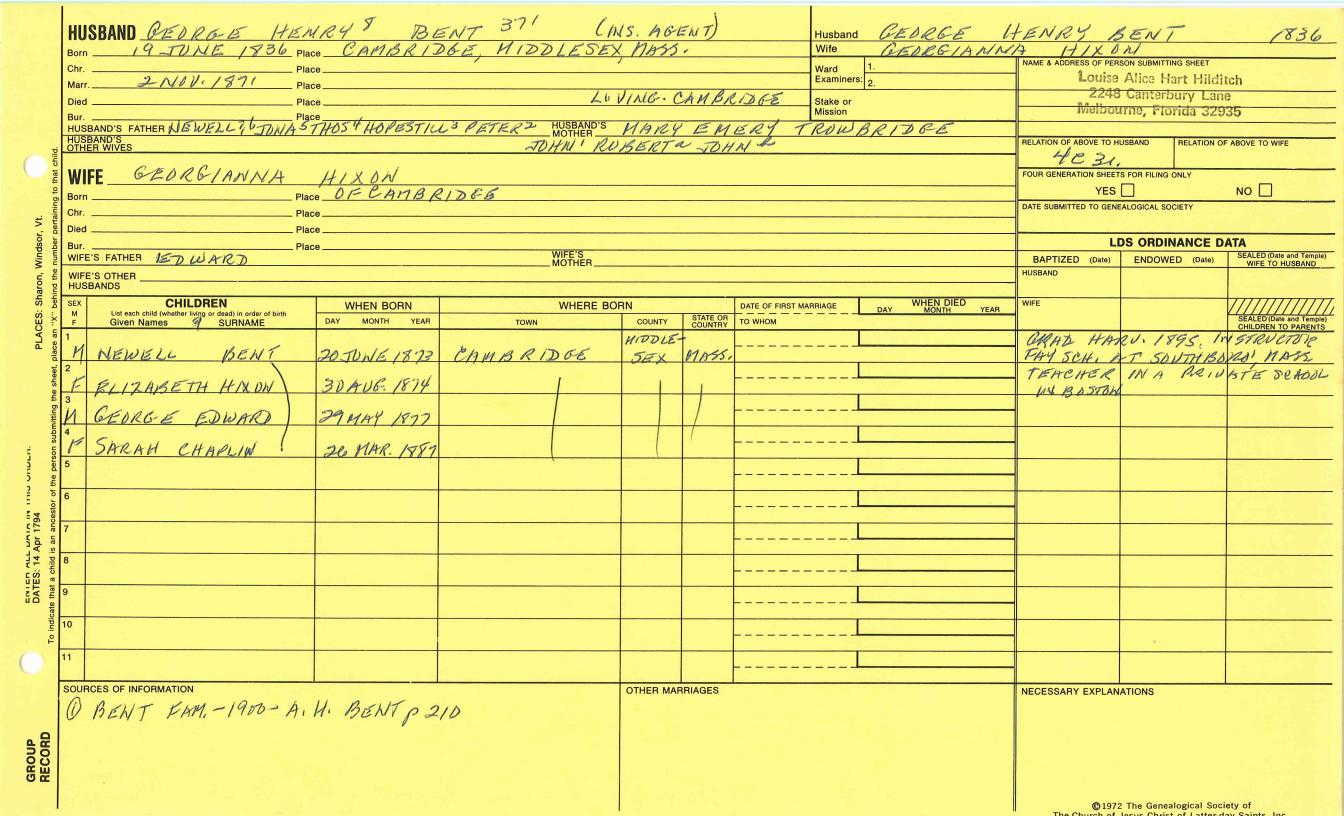 HUSBAND GEORGE HENRY 8 BENT 371 (INS. AGENT)
Born 19 JUNE 1836 Place CAMBRIDGE, MIDDLESEX, MASS.
Chr. Place
Marr. 2 NOV. 1871 Place
Died Place LIVING. CAMBRIDGE
Bur. Place
HUSBAND'S FATHER NEWELL 7 6 JONAS 5 THOS 4 HOPESTILL 3 PETER 2 HUSBAND'S MOTHER MARY EMERY TROWBRIDGE
HUSBAND'S OTHER WIVES JOHN 1 ROBERT a JOHN b
WIFE GEORGIANNA HIXON
Born Place OF CAMBRIDGE
Chr. Place
Died Place
Bur. Place
WIFE'S FATHER EDWARD WIFE'S MOTHER
WIFE'S OTHER HUSBANDS
Husband GEORGE HENRY BENT 1836
Wife GEORGIANNA HIXON
Ward Examiners: 1.
2.
Stake or Mission
NAME & ADDRESS OF PERSON SUBMITTING SHEET
Louise Alice Hart Hilditch
2248 Canterbury Lane
Melbourne, Florida 32935
RELATION OF ABOVE TO HUSBAND RELATION OF ABOVE TO WIFE
4C 3r.
FOUR GENERATION SHEETS FOR FILING ONLY
YES NO
DATE SUBMITTED TO GENEALOGICAL SOCIETY
LDS ORDINANCE DATA
BAPTIZED (Date) ENDOWED (Date) SEALED (Date and Temple) WIFE TO HUSBAND
HUSBAND
WIFE
SEALED (Date and Temple) CHILDREN TO PARENTS
SEX M F CHILDREN WHEN BORN WHERE BORN DATE OF FIRST MARRIAGE WHEN DIED
List each child (whether living or dead) in order of birth
Given Names 9 SURNAME DAY MONTH YEAR TOWN COUNTY STATE OR COUNTRY TO WHOM DAY MONTH YEAR
1 M NEWELL BENT 20 JUNE 1873 CAMBRIDGE MIDDLE-SEX MASS.
2 F ELIZABETH HIXON 30 AUG. 1874
3 M GEORGE EDWARD 29 MAY 1877
4 F SARAH CHAPLIN 26 MAR. 1887
5
6
7
8
9
10
11
GRAD HARV. 1895, INSTRUCTOR
FAY SCH. AT SOUTHBORO' MASS
TEACHER IN A PRIVATE SCHOOL
IN BOSTON
SOURCES OF INFORMATION
① BENT FAM. - 1900 - A. H. BENT p 210
OTHER MARRIAGES
NECESSARY EXPLANATIONS
©1972 The Genealogical Society of
The Church of Jesus Christ of Latter-day Saints, Inc.
PLACES: Sharon, Windsor, Vt.
ENTER ALL DATA IN THIS ORDER:
DATES: 14 Apr 1794
To indicate that a child is an ancestor of the person submitting the sheet, place an "X" behind the number pertaining to that child.
GROUP RECORD